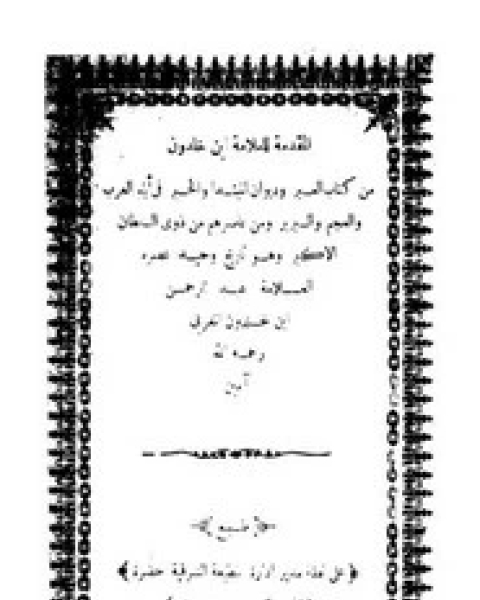 المقدمة للعلامة ابن خلدون
من كتاب العبر وديوان المبتدا والخبر فى أيام العرب
والعجم والبربر ومن عاصرهم من ذوى السلطان
الاكبر وهو تاريخ وحيد عصره
العلامة عبد الرحمن
ابن خلدون المغربى
رحمه الله
آمين
طبع
على نفقة مدير ادارة مطبعة الشرفية حضرة